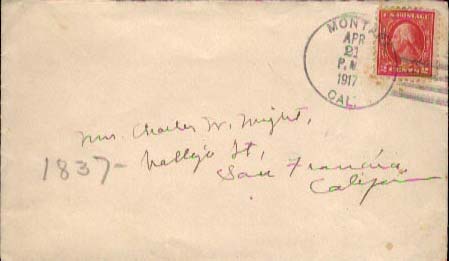 MONTA
APR
21
P.M.
1917
CAL.
U.S. POSTAGE
2 CENTS 2
Mrs. Charles W. Wright,
1837- Vallejo St,
San Francisco
California